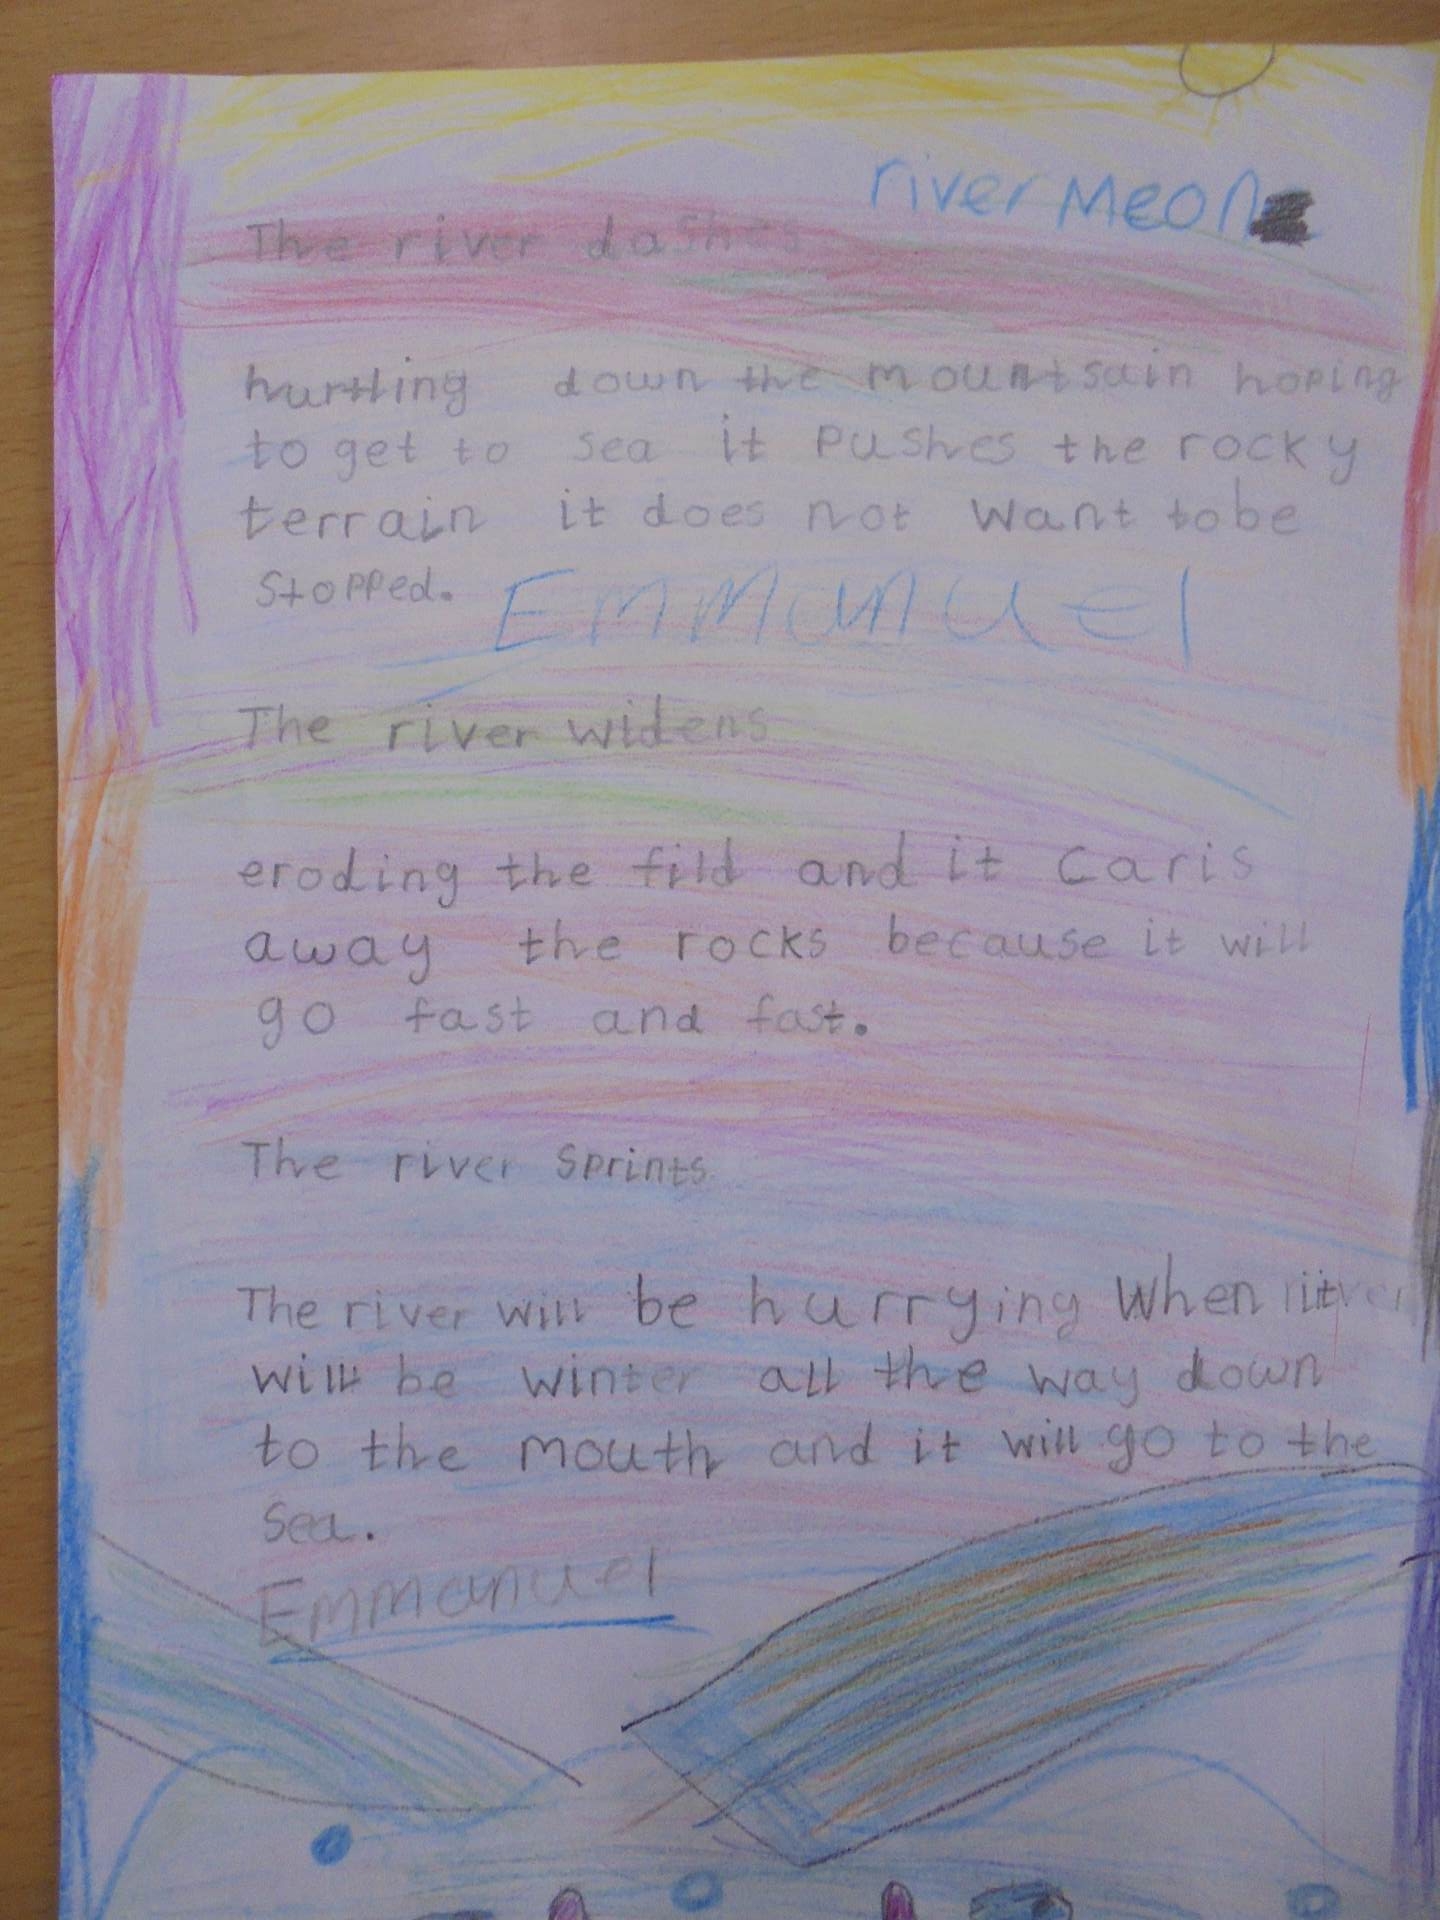 river Meon
The river dashes
hurtling down the mountsain hoping
to get to sea it pushes the rocky
terrain it does not want tobe
stopped. Emmanuel
The river widens
eroding the fild and it caris
away the rocks because it will
go fast and fast.
The river sprints
The river will be hurrying when it
will be winter all the way down
to the mouth and it will go to the
sea.
Emmanuel